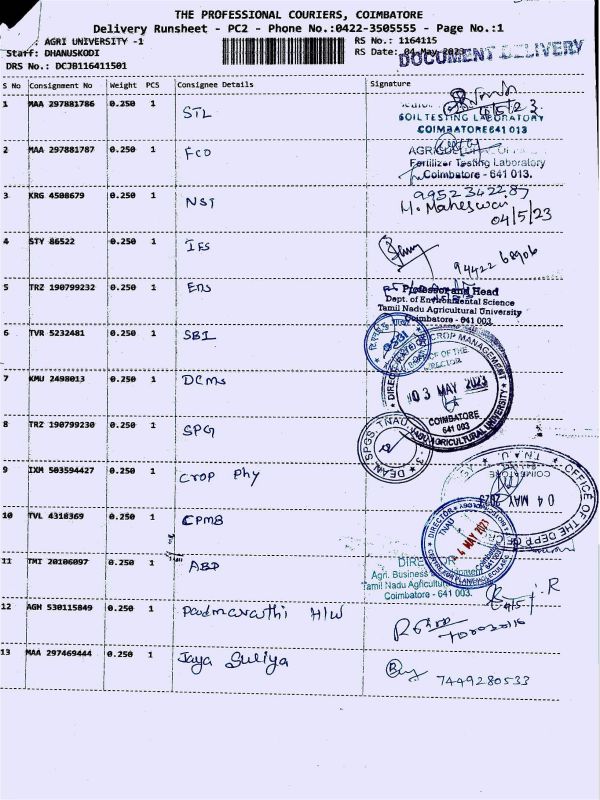 THE PROFESSIONAL COURIERS, COIMBATORE
Delivery Runsheet - PC2 - Phone No.:0422-3505555 - Page No.:1
: AGRI UNIVERSITY -1
RS No.: 1164115
Staff: DHANUSKODI
RS Date: 04-May-2023
DOCUMENT DELIVERY
DRS No.: DCJB116411501
S No Consignment No Weight PCS Consignee Details Signature
1 MAA 297881786 0.250 1 STL
4/5/23
SOIL TESTING LABORATORY
COIMBATORE 641 013
2 MAA 297881787 0.250 1 FCO
Fertilizer Testing Laboratory
Coimbatore - 641 013.
3 KRG 4508679 0.250 1 NST
9952342287
M. Maheswari
04/5/23
4 STY 86522 0.250 1 IFS
94422 68906
5 TRZ 190799232 0.250 1 ENS
Professor and Head
Dept. of Environmental Science
Tamil Nadu Agricultural University
Coimbatore - 641 003.
6 TVR 5232481 0.250 1 SBI
7 KMU 2498013 0.250 1 DCms
CROP MANAGEMENT
OFFICE OF THE
DIRECTOR
03 MAY 2023
COIMBATORE
641 003
AGRICULTURAL UNIVERSITY
8 TRZ 190799230 0.250 1 SPG
DEAN SPGS TNAU
9 IXM 503594427 0.250 1 Crop Phy
OFFICE OF THE DEPT OF
T.N.A.U.
COIMBATORE
04 MAY 2023
10 TVL 4318369 0.250 1 CPMB
DIRECTOR
TNAU
4 MAY 2023
11 TMI 20106097 0.250 1 ABD
DIRECTOR
Agri. Business
Tamil Nadu Agricultural
Coimbatore - 641 003.
12 AGH 530115849 0.250 1 Padmavathi H/W
13 MAA 297469444 0.250 1 Jaya Suriya
7449280533